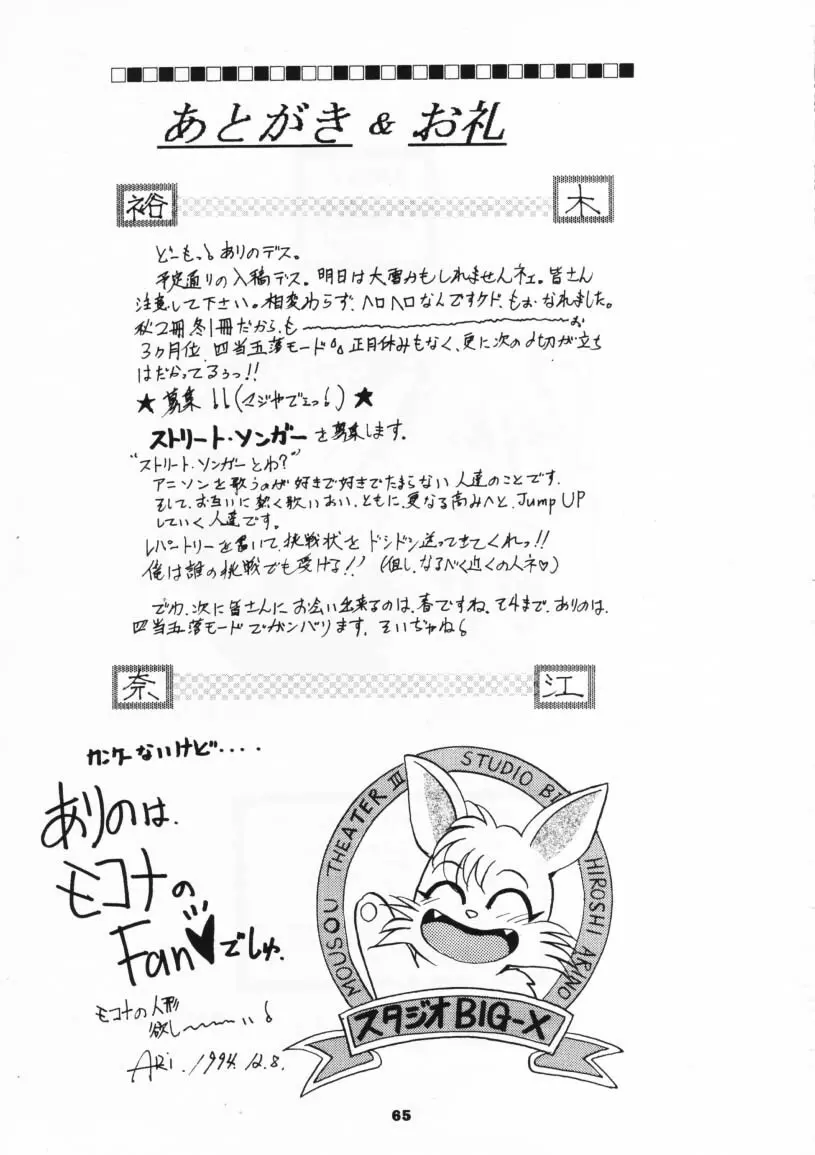 あとがき & お礼
裕 木
どーもっ！ありのデス。
予定通りの入稿デス。明日は大雪かもしれませんネェ。皆さん
注意して下さい。相変わらず、ヘロヘロなんですケド、もぉ、なれました。
秋2冊冬1冊だから、も〜〜〜〜〜お
3ヶ月位、四当五落モード。。正月休みもなく、更に次の〆切が立ち
はだかってるぅっ!!
★募集!!(マジやでェっ！)★
ストリート・ソンガーを募集します。
"ストリート・ソンガーとわ？"
アニソンを歌うのが好きで好きでたまらない人達のことです。
そして、お互いに熱く歌いあい、ともに、更なる高みへと、Jump UP
していく人達です。
レパートリーを書いて、挑戦状をドシドシ送ってきてくれっ!!
俺は誰の挑戦でも受ける!!(但し、なるべく近くの人ネ♡)
でわ、次に皆さんにお会い出来るのは、春ですね。それまで、ありのは、
四当五落モードでガンバリます。そいぢゃね！
奈 江
カンケーないけど‥‥
ありのは、
モコナの
Fan♥でしゅ。
モコナの人形
欲し〜〜〜い！
ARI. 1994.12.8.
MOUSOU THEATER III STUDIO BI HIROSHI ARINO
スタジオBIG-X
65